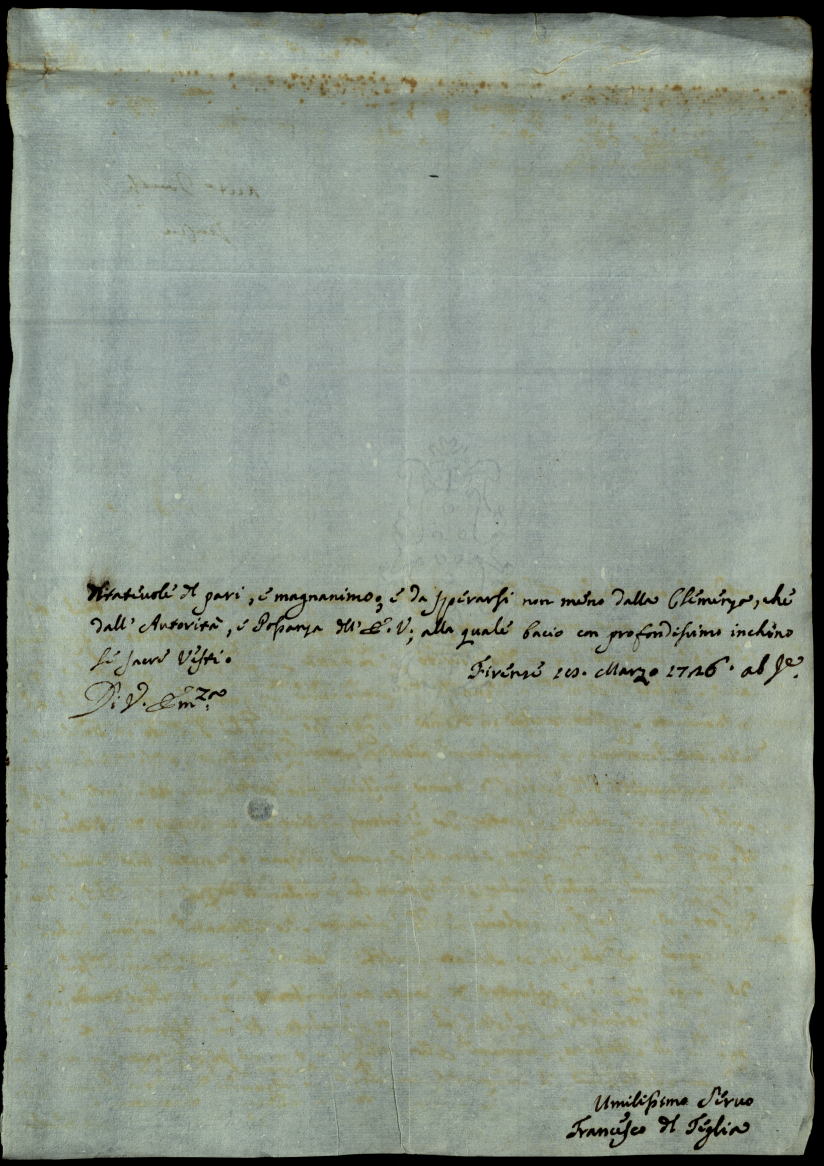 tratevole del pari, e magnanimo, e da sperarsi non meno dalla Clemenza, che
dall' Autorità, e Possanza dell' E. V., alla quale bacio con profondissimo inchino
le sacre Vesti.
Firenze 10. Marzo 1726. ab Inc.
Di V. Emza.
Umilissimo Servo
Francesco del Teglia